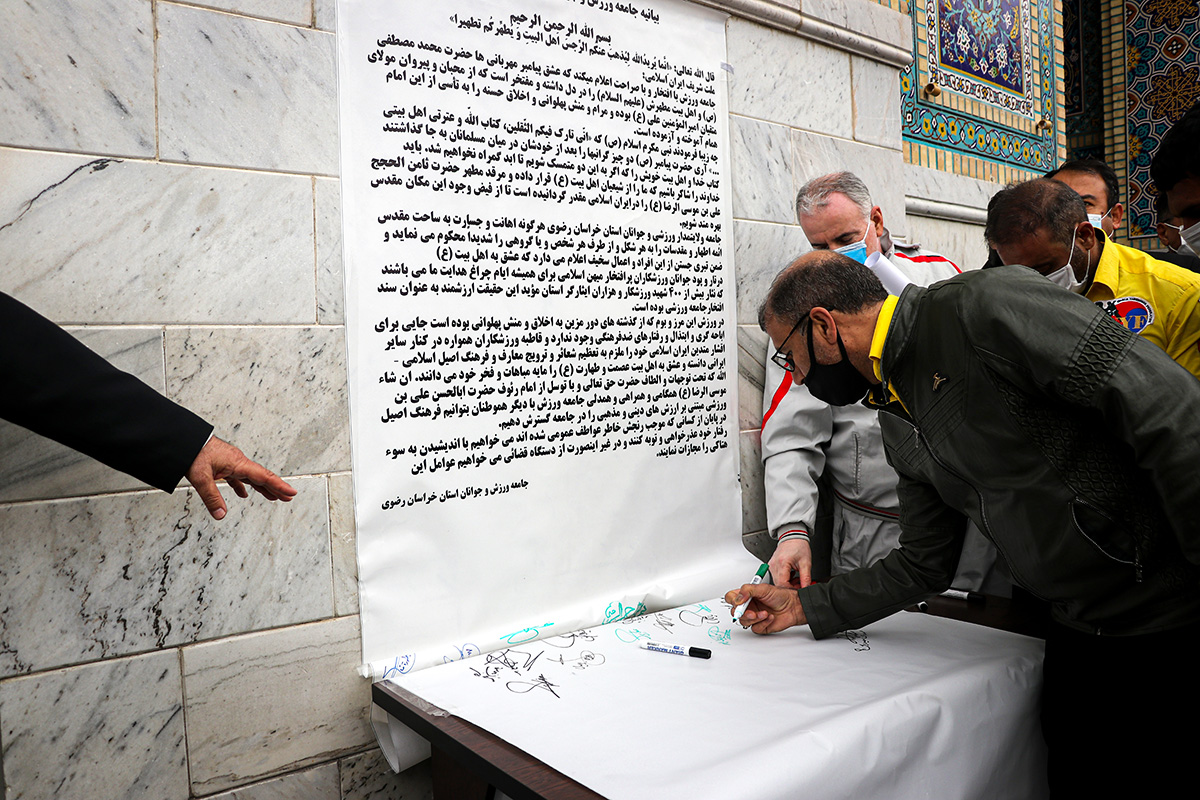 بیانیه جامعه ورزش و
بسم الله الرحمن الرحیم
قال الله تعالی: «انّما یُریدُالله لیُذهِبَ عَنکُم الرِّجسَ اَهلَ البَیتِ وَ یُطَهِّرَ کُم تَطهیرا»
ملت شریف ایران اسلامی:
جامعه ورزش با افتخار و با صراحت اعلام میکند که عشق پیامبر مهربانی ها حضرت محمد مصطفی
(ص) و اهل بیت مطهرش (علیهم السلام) را در دل داشته و مفتخر است که از محبان و پیروان مولای
متقیان امیرالمؤمنین علی (ع) بوده و مرام و منش پهلوانی و اخلاق حسنه را به تأسی از این امام
همام آموخته و آزموده است.
چه زیبا فرمودند نبی مکرم اسلام (ص) که «انّی تارک فیکم الثّقلین، کتاب الله و عترتی اهل بیتی
...» آری حضرت پیامبر (ص) دو چیز گرانبها را بعد از خودشان در میان مسلمانان به جا گذاشتند
کتاب خدا و اهل بیت خویش را که اگر به این دو متمسک شویم تا ابد گمراه نخواهیم شد. باید
خداوند را شاکر باشیم که ما را از شیعیان اهل بیت (ع) قرار داده و مرقد مطهر حضرت ثامن الحجج
علی بن موسی الرضا (ع) را درایران اسلامی مقدر گردانیده است تا از فیض وجود این مکان مقدس
بهره مند شویم.
جامعه ولایتمدار ورزشی و جوانان استان خراسان رضوی هرگونه اهانت و جسارت به ساحت مقدس
ائمه اطهار و مقدسات را به هر شکل و از طرف هر شخص و یا گروهی را شدیدا محکوم می نماید و
ضمن تبری جستن از این افراد و اعمال سخیف اعلام می دارد که عشق به اهل بیت (ع)
درتار و پود جوانان ورزشکاران پرافتخار میهن اسلامی برای همیشه ایام چراغ هدایت ما می باشند
که نثار بیش از ۴۰۰ شهید ورزشکار و هزاران ایثارگر استان مؤید این حقیقت ارزشمند به عنوان سند
افتخارجامعه ورزشی بوده است.
در ورزش این مرز و بوم که از گذشته های دور مزین به اخلاق و منش پهلوانی بوده است جایی برای
اباحه گری و ابتذال و رفتارهای ضدفرهنگی وجود ندارد و قاطبه ورزشکاران همواره در کنار سایر
اقشار متدین ایران اسلامی خود را ملزم به تعظیم شعائر و ترویج معارف و فرهنگ اصیل اسلامی -
ایرانی دانسته و عشق به اهل بیت عصمت و طهارت (ع) را مایه مباهات و فخر خود می دانند. ان شاء
الله که تحت توجهات و الطاف حضرت حق تعالی و با توسل از امام رئوف حضرت ابالحسن علی بن
موسی الرضا (ع) همگامی و همراهی و همدلی جامعه ورزش با دیگر هموطنان بتوانیم فرهنگ اصیل
ورزشی مبتنی بر ارزش های دینی و مذهبی را در جامعه گسترش دهیم.
در پایان از کسانی که موجب رنجش خاطر عواطف عمومی شده اند می خواهیم با اندیشیدن به سوء
رفتار خود عذرخواهی و توبه کنند و در غیر اینصورت از دستگاه قضائی می خواهیم عوامل این
هتاکی را مجازات نمایند.
جامعه ورزش و جوانان استان خراسان رضوی